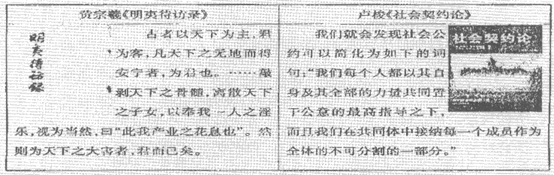 黄宗羲《明夷待访录》
明夷待访录
古者以天下为主，君
为客，凡天下之无地而得
安宁者，为君也。……敲
剥天下之骨髓，离散天下
之子女，以奉我一人之淫
乐，视为当然，曰“此我产业之花息也”。然
则为天下之大害者，君而已矣。
卢梭《社会契约论》
我们就会发现社会公
约可以简化为如下的词
句：“我们每个人都以其自
身及其全部的力量共同置
于公意的最高指导之下，
而且我们在共同体中接纳每一个成员作为
全体的不可分割的一部分。”
社会契约论